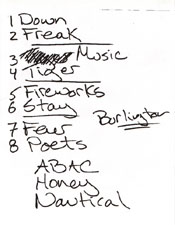 1 Down
2 Freak
3 Music
4 Tiger
5 Fireworks
6 Stay
Burlington
7 Few
8 Poets
ABAC
Honey
Nautical